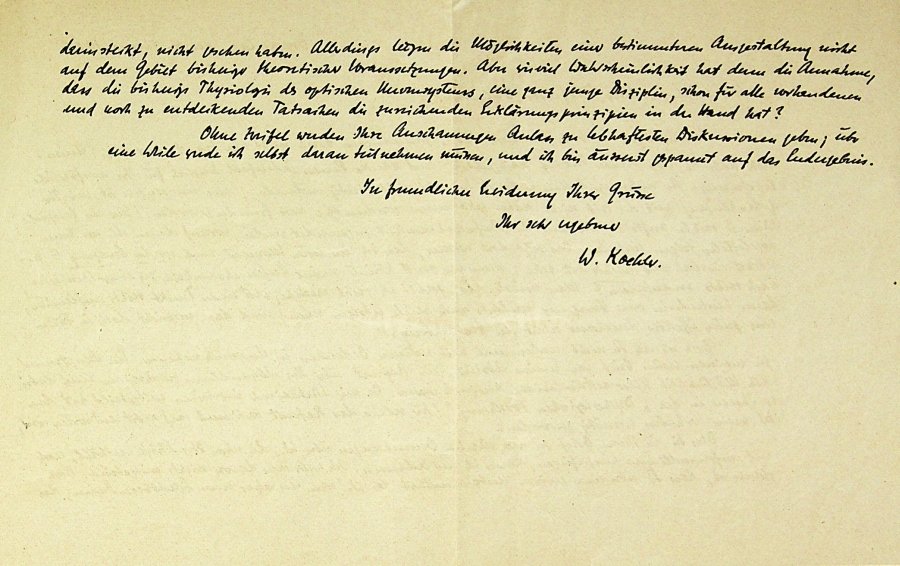 darinsteckt, nicht gesehen haben. Allerdings liegen die Möglichkeiten einer bestimmteren Ausgestaltung nicht
auf dem Gebiet bisheriger theoretischer Voraussetzungen. Aber wieviel Wahrscheinlichkeit hat denn die Annahme,
dass die bisherige Physiologie des optischen Nervensystems, eine ganz junge Disziplin, schon für alle vorhandenen
und noch zu entdeckenden Tatsachen die zureichenden Erklärungsprinzipien in der Hand hat?
Ohne Zweifel werden Ihre Anschauungen Anlass zu lebhaftesten Diskussionen geben; über
eine Weile werde ich selbst daran teilnehmen müssen, und ich bin äusserst gespannt auf das Endergebnis.
In freundlicher Erwiderung Ihrer Grüsse
Ihr sehr ergebener
W. Koehler.